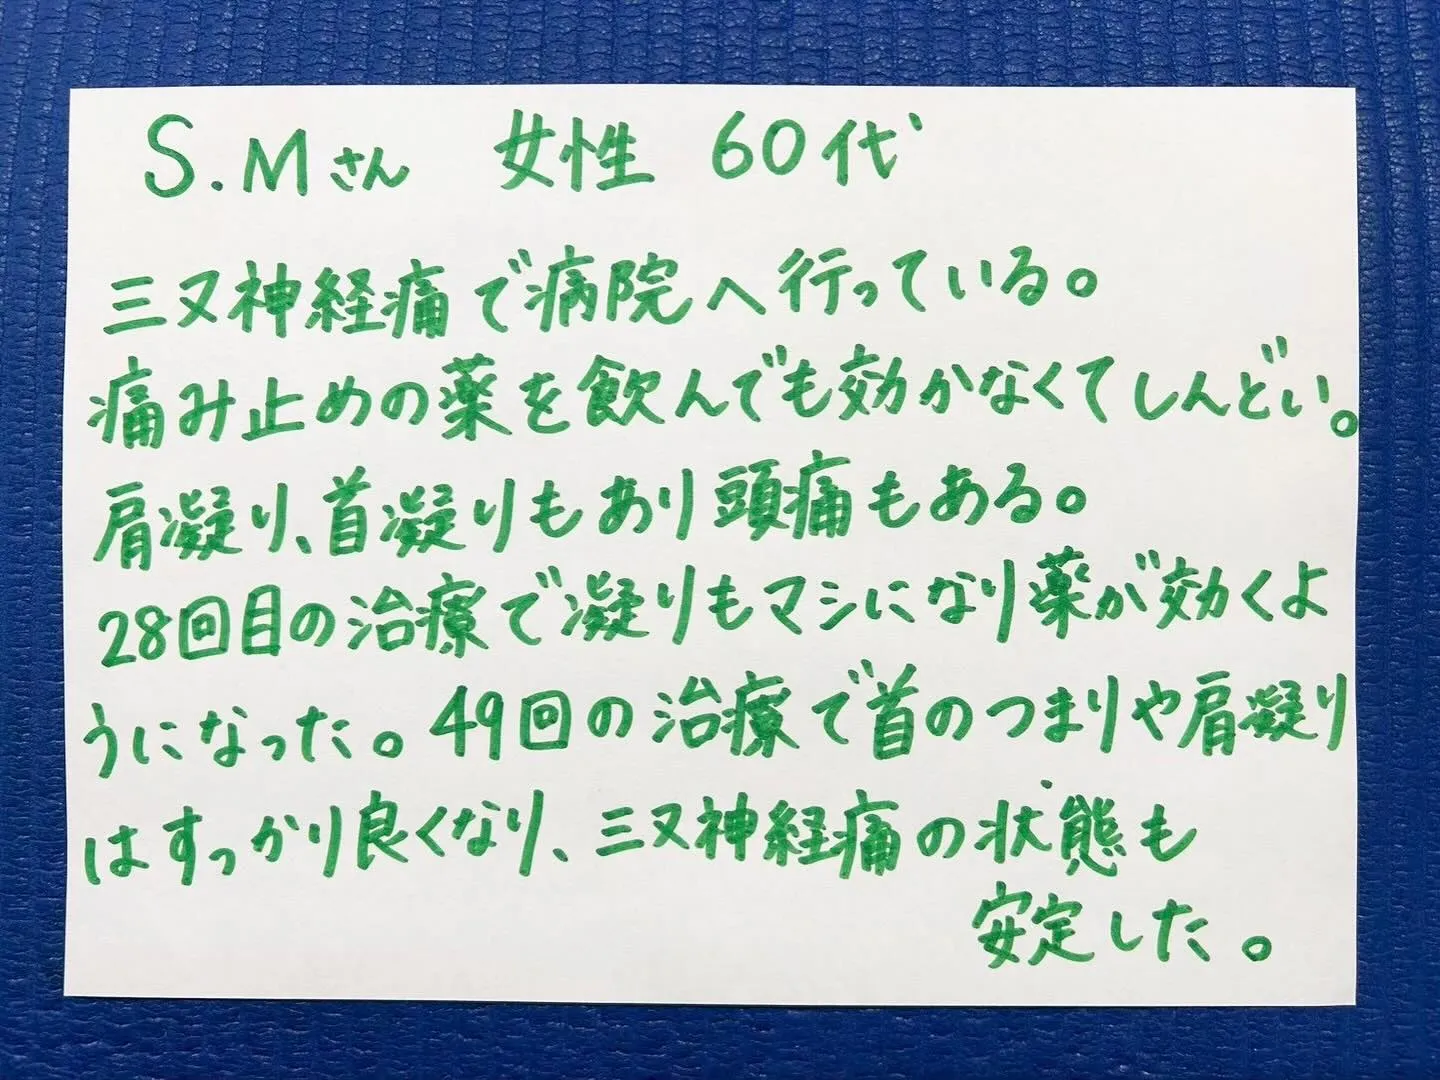 S.Mさん 女性 60代
三叉神経痛で病院へ行っている。
痛み止めの薬を飲んでも効かなくてしんどい。
肩凝り、首凝りもあり頭痛もある。
28回目の治療で凝りもマシになり薬が効くよ
うになった。49回の治療で首のつまりや肩凝り
はすっかり良くなり、三叉神経痛の状態も
安定した。